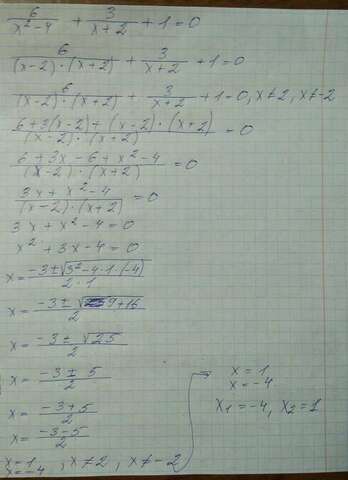 6/(x²-4) + 3/(x+2) + 1 = 0
6/((x-2)·(x+2)) + 3/(x+2) + 1 = 0
6/((x-2)·(x+2)) + 3/(x+2) + 1 = 0, x≠2, x≠-2
(6+3(x-2)+(x-2)·(x+2))/((x-2)·(x+2)) = 0
(6+3x-6+x²-4)/((x-2)·(x+2)) = 0
(3x+x²-4)/((x-2)·(x+2)) = 0
3x+x²-4=0
x²+3x-4=0
x = (-3±√(3²-4·1·(-4)))/(2·1)
x = (-3±√(9+16))/2
x = (-3±√25)/2
x = (-3±5)/2
x = (-3+5)/2
x = (-3-5)/2
x=1
x=-4, x≠2, x≠-2
x=1
x=-4
x₁=-4, x₂=1